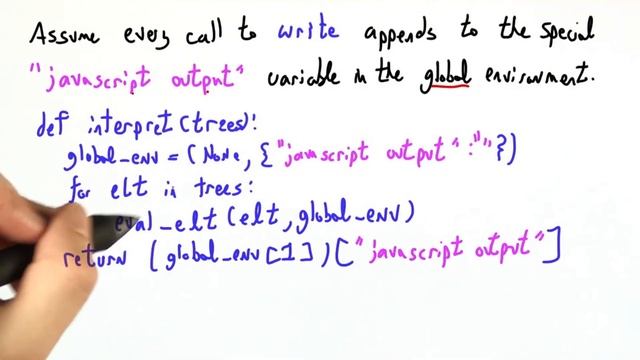 Assume every call to write appends to the special
"javascript output" variable in the global environment.
def interpret(trees):
global_env = (None, {"javascript output":""})
for elt in trees:
eval_elt(elt, global_env)
return (global_env[1])["javascript output"]